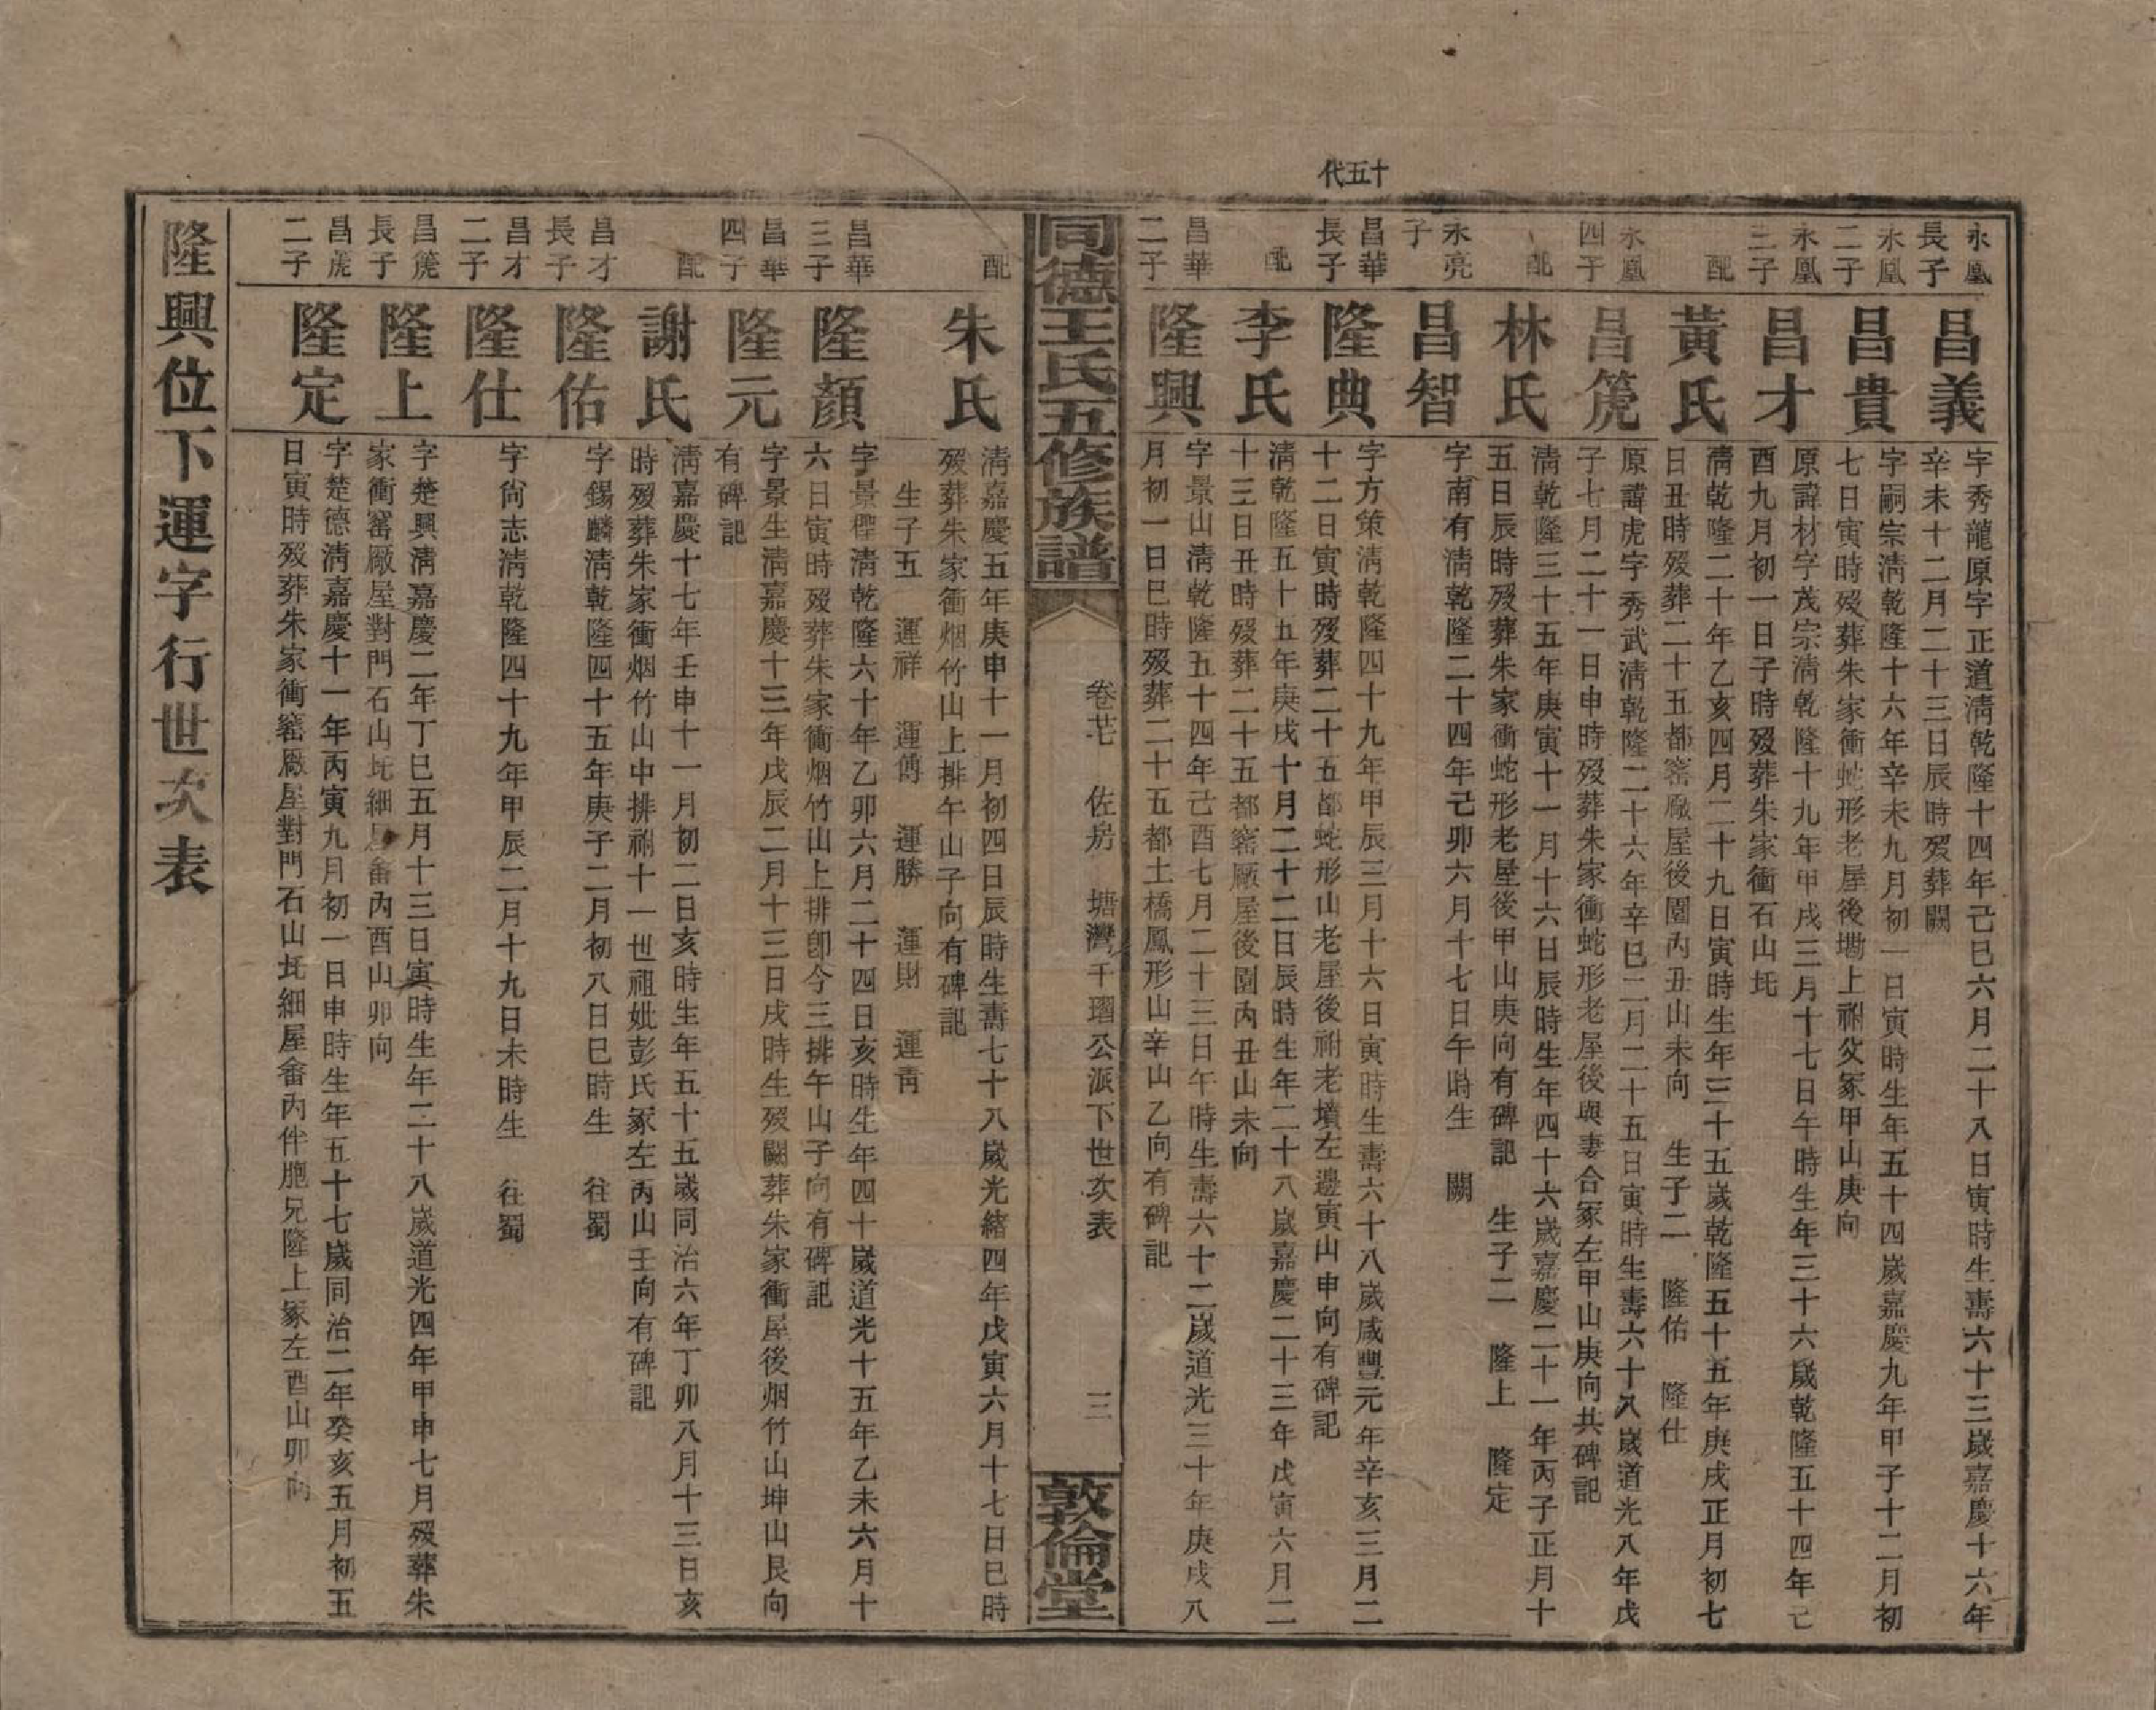 十五代
永鳳長子
昌義
字秀龍原字正道淸乾隆十四年己巳六月二十八日寅時生壽六十三歲嘉慶十六年
辛未十二月二十三日辰時歿葬闕
永鳳二子
昌貴
字嗣宗淸乾隆十六年辛未九月初一日寅時生年五十四歲嘉慶九年甲子十二月初
七日寅時歿葬朱家衝蛇形老屋後塝上祔父冢甲山庚向
永鳳三子
昌才
原諱材字茂宗淸乾隆十九年甲戌三月十七日午時生年三十六歲乾隆五十四年己
酉九月初一日子時歿葬朱家衝石山坵
配
黃氏
淸乾隆二十年乙亥四月二十九日寅時生年三十五歲乾隆五十五年庚戌正月初七
日丑時歿葬二十五都窰廠屋後園內丑山未向 生子二 隆佑 隆仕
永鳳四子
昌箎
原諱虎字秀武淸乾隆二十六年辛巳二月二十五日寅時生壽六十八歲道光八年戊
子七月二十一日申時歿葬朱家衝蛇形老屋後與妻合冢左甲山庚向共碑記
配
林氏
淸乾隆三十五年庚寅十一月十六日辰時生年四十六歲嘉慶二十一年丙子正月十
五日辰時歿葬朱家衝蛇形老屋後甲山庚向有碑記 生子二 隆上 隆定
永亮子
昌智
字南有淸乾隆二十四年己卯六月十七日午時生 闕
昌華長子
隆典
字方策淸乾隆四十九年甲辰三月十六日寅時生壽六十八歲咸豐元年辛亥三月二
十二日寅時歿葬二十五都蛇形山老屋後祔老墳左邊寅山申向有碑記
配
李氏
淸乾隆五十五年庚戌十月二十二日辰時生年二十八歲嘉慶二十三年戊寅六月二
十三日丑時歿葬二十五都窰廠屋後園內丑山未向
昌華二子
隆興
字景山淸乾隆五十四年己酉七月二十三日午時生壽六十二歲道光三十年庚戌八
月初一日巳時歿葬二十五都土橋鳳形山辛山乙向有碑記
同德王氏五修族譜
卷芘 佐房 塘灣千瑠公派下世次表
三
敦倫堂
配
朱氏
淸嘉慶五年庚申十一月初四日辰時生壽七十八歲光緒四年戊寅六月十七日巳時
歿葬朱家衝烟竹山上排午山子向有碑記
生子五 運祥 運傅 運勝 運財 運靑
昌華三子
隆顏
字景檉淸乾隆六十年乙卯六月二十四日亥時生年四十歲道光十五年乙未六月十
六日寅時歿葬朱家衝烟竹山上排卽今三排午山子向有碑記
昌華四子
隆元
字景生淸嘉慶十三年戊辰二月十三日戌時生歿闕葬朱家衝屋後烟竹山坤山艮向
有碑記
配
謝氏
淸嘉慶十七年壬申十一月初二日亥時生年五十五歲同治六年丁卯八月十三日亥
時歿葬朱家衝烟竹山中排祔十一世祖妣彭氏冢左丙山壬向有碑記
昌才長子
隆佑
字錫麟淸乾隆四十五年庚子二月初八日巳時生 往蜀
昌才二子
隆仕
字尙志淸乾隆四十九年甲辰二月十九日未時生 往蜀
昌箎長子
隆上
字楚興淸嘉慶二年丁巳五月十三日寅時生年二十八歲道光四年甲申七月歿葬朱
家衝窰廠屋對門石山坵細屋畬內酉山卯向
昌箎二子
隆定
字楚德淸嘉慶十一年丙寅九月初一日申時生年五十七歲同治二年癸亥五月初五
日寅時歿葬朱家衝窰廠屋對門石山坵細屋畬內伴胞兄隆上冢左酉山卯向
隆興位下運字行世次表